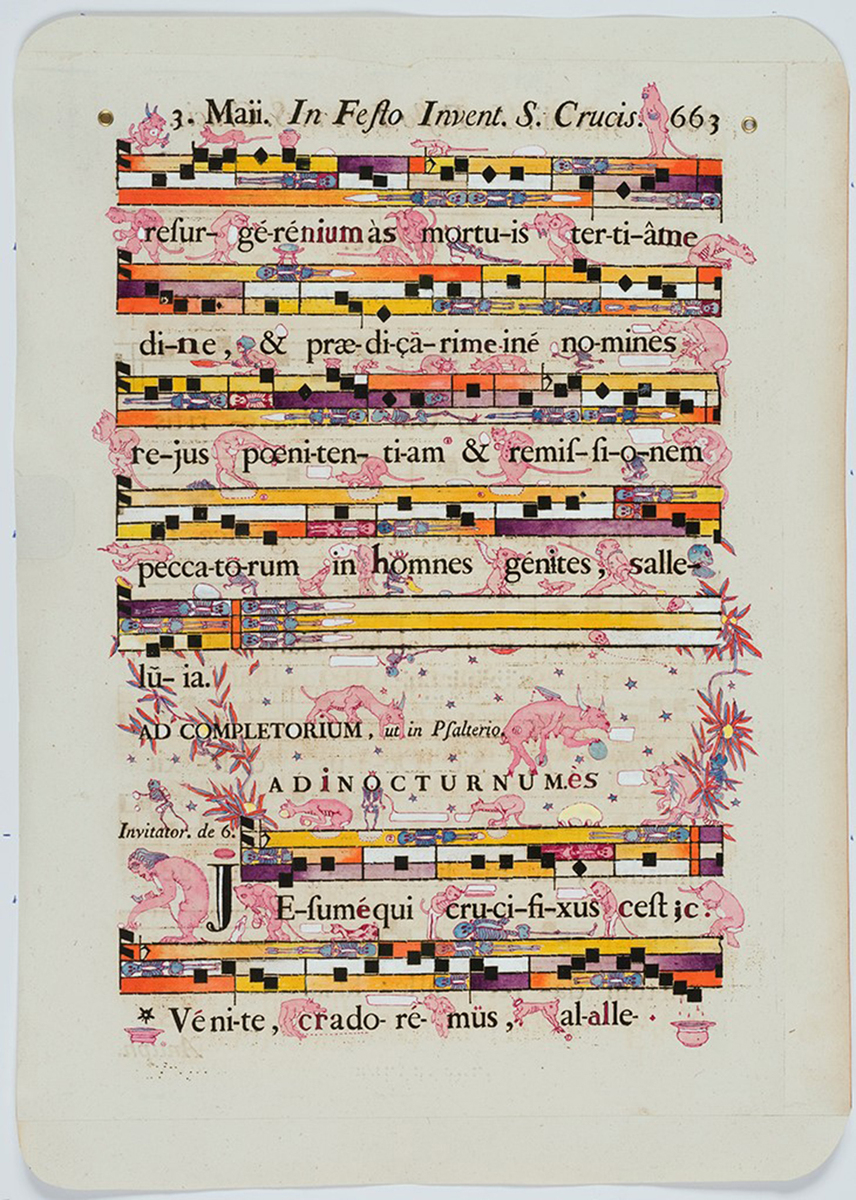 3. Maii. In Festo Invent. S. Crucis. 663
resur- gé-rénium às mortu-is ter-ti-âme
di-ne, & præ-di-çã-rime-iné no-mines
re-jus pœni-ten- ti-am & remis-si-o-nem
pecca-to-rum in homnes génites, salle-
lũ- ia.
AD COMPLETORIUM, ut in Psalterio.
ADiNOCTURNUM.ès
Invitator. de 6.
JE-suméqui cru-ci-fi-xus cest ;c.
* Véni-te, crado- ré- müs, al-alle-